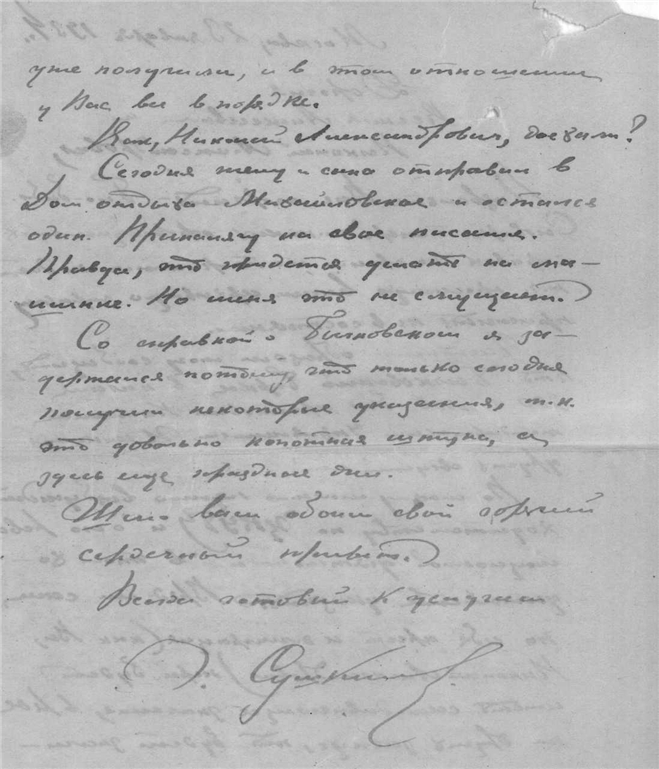 уже получили, и в этом отношении
у Вас все в порядке.
Как, Николай Александрович, доехали?
Сегодня жену и сына отправил в
Дом отдыха Михайловское и остался
один. Приналягу на свое писание.
Правда, это придется делать на ма-
шинке. Но меня это не смущает.
Со справкой о Бычковском я за-
держался потому, что только сегодня
получил некоторые указания, т.к.
это довольно копотная штука, а
здесь еще праздные дни.
Шлю вам обоим свой горячий
сердечный привет.
Всегда готовый к услугам